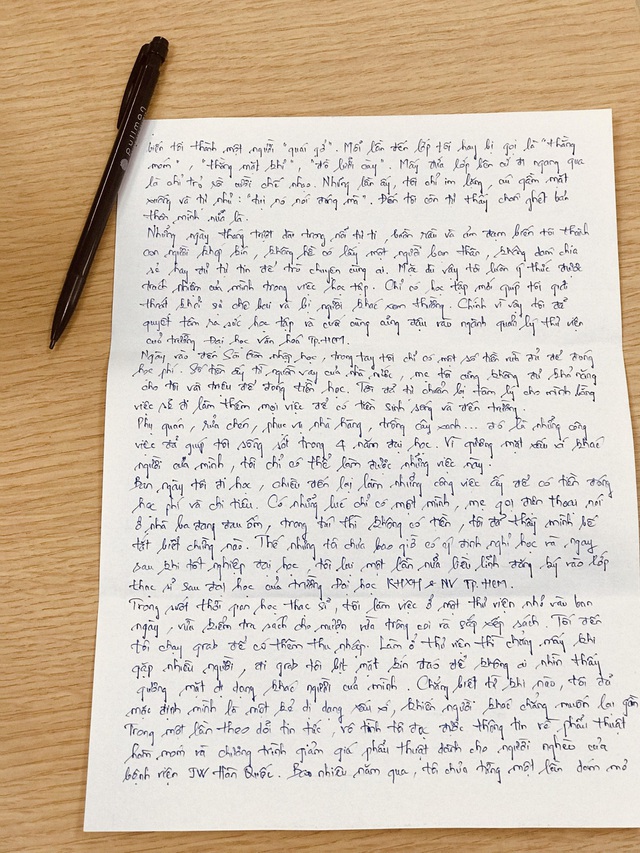 pullman
biến tôi thành một người "quái gở". Mỗi lần đến lớp tôi hay bị gọi là "thằng
móm", "thằng mặt khỉ", "đồ lưỡi cày". Mấy đứa lớp bên cứ đi ngang qua
là chỉ trỏ và cười chê nhạo. Những lần ấy, tôi chỉ im lặng, cúi gằm mặt
xuống và tự nhủ: "tụi nó nói đúng mà". Đến tôi còn tự thấy chán ghét bản
thân mình nữa là.
Những ngày tháng trượt dài trong nỗi tự ti, buồn rầu và ảm đạm biến tôi thành
con người khép kín, không hề có lấy một người bạn thân, không dám chia
sẻ hay đủ tự tin để trò chuyện cùng ai. Mặc dù vậy tôi luôn ý thức được
trách nhiệm của mình trong việc học tập. Chỉ có học tập mới giúp tôi quá
thoát khỏi sự chê bai và bị người khác xem thường. Chính vì vậy tôi đã
quyết tâm ra sức học tập và cuối cùng cũng đậu vào ngành quản lý thư viện
của trường Đại học văn hoá TP.HCM.
Ngày vào đến Sài Gòn nhập học, trong tay tôi chỉ có một số tiền vừa đủ để đóng
học phí. Số tiền ấy từ nguồn vay của nhà nước, mẹ tôi cũng không đủ khả năng
cho tôi vài triệu để đóng tiền học. Tôi đã tự chuẩn bị tâm lý cho mình bằng
việc sẽ đi làm thêm mọi việc để có tiền sinh sống và đến trường.
Phụ quán, rửa chén, phục vụ nhà hàng, trồng cây xanh... đó là những công
việc đã giúp tôi sống sót trong 4 năm đại học. Vì gương mặt xấu xí khác
người của mình, tôi chỉ có thể làm được những việc này.
Ban ngày tôi đi học, chiều đến lại làm những công việc ấy để có tiền đóng
học phí và chi tiêu. Có những lúc chỉ có một mình, mẹ gọi điện thoại nói
ở nhà ba đang đau ốm, trong túi thì không có tiền, tôi đã thấy mình bế
tắc biết chừng nào. Thế nhưng tôi chưa bao giờ có ý định nghỉ học và ngay
sau khi tốt nghiệp đại học, tôi lại một lần nữa liều lĩnh đăng ký vào lớp
thạc sĩ sau đại học của trường Đại học KHXH & NV TP.HCM.
Trong suốt thời gian học thạc sĩ, tôi làm việc ở một thư viện nhỏ vào ban
ngày, vừa kiểm tra sách cho mượn vừa trông coi và sắp xếp sách. Tối đến
tôi chạy grab để có thêm thu nhập. Làm ở thư viện thì chẳng mấy khi
gặp nhiều người, đi grab tôi bịt mặt kín đáo để không ai nhìn thấy
gương mặt dị dạng khác người của mình. Chẳng biết từ khi nào, tôi đã
mặc định mình là một kẻ dị dạng xấu xí, khiến người khác chẳng muốn lại gần.
Trong một lần theo dõi tin tức, vô tình tôi đọc được thông tin về phẫu thuật
hàm móm và chương trình giảm giá phẫu thuật dành cho người nghèo của
bệnh viện JW Hàn Quốc. Bao nhiêu năm qua, tôi chưa từng một lần dám mơ